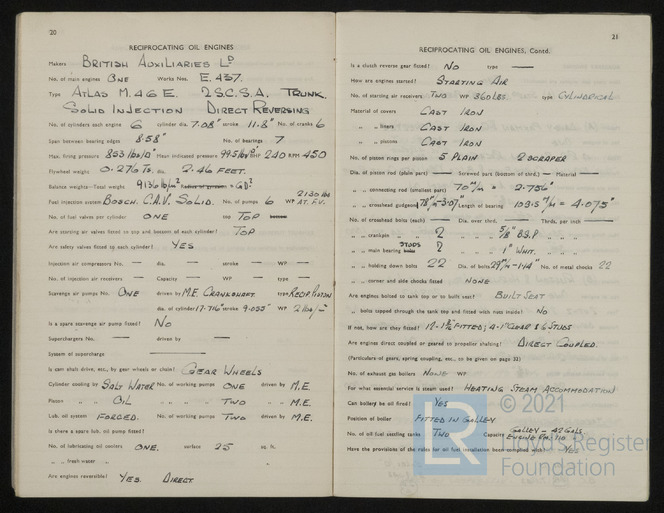 20
RECIPROCATING OIL ENGINES
Makers BRITISH AUXILIARIES LD
No. of main engines ONE Works Nos. E.437.
Type ATLAS M.46E. 2S.C.S.A. TRUNK.
SOLID INJECTION DIRECT REVERSING
No. of cylinders each engine 6 cylinder dia. 7.08" stroke 11.8" No. of cranks 6
Span between bearing edges 8.58" No. of bearings 7
Max. firing pressure 853 lbs/□" Mean indicated pressure 99.5 lbs/□" BHP 240 RPM 450
Flywheel weight 0.276 Ts. dia. 2.46 FEET.
Balance weights—Total weight
Fuel injection system BOSCH. C.A.V. SOLID. No. of pumps 6 WP 2130 lbs AT. F.V.
No. of fuel valves per cylinder ONE at TOP
Are starting air valves fitted to top and bottom of each cylinder? TOP
Are safety valves fitted to each cylinder? YES
Injection air compressors No. — dia. — stroke — WP —
No. of injection air receivers — Capacity — WP — type —
Scavenge air pumps No. ONE driven by M.E. CRANKSHAFT type RECIP. PISTON
dia. of cylinder 17.716" stroke 9.055" WP 2 lbs/□"
Is a spare scavenge air pump fitted? NO
Superchargers No. — driven by —
System of supercharge —
Is cam shaft drive, etc., by gear wheels or chain? GEAR WHEELS
Cylinder cooling by SALT WATER No. of working pumps ONE driven by M.E.
Piston „ „ OIL „ „ „ TWO „ „ M.E.
Lub. oil system FORCED. No. of working pumps TWO driven by M.E.
Is there a spare lub. oil pump fitted?
No. of lubricating oil coolers ONE. surface 25 sq. ft.
„ „ fresh water „
Are engines reversible? YES. DIRECT
21
RECIPROCATING OIL ENGINES, Contd.
Is a clutch reverse gear fitted? NO type —
How are engines started? STARTING AIR
No. of starting air receivers TWO WP 360 LBS type CYLINDRICAL
Material of covers CAST IRON
„ „ liners CAST IRON
„ „ pistons CAST IRON
No. of piston rings per piston 5 PLAIN 2 SCRAPER
Dia. of piston rod (plain part) — Screwed part (bottom of thread.) — Material —
„ „ connecting rod (smallest part) 70 m/m = 2.756"
„ „ crosshead gudgeon 78 m/m - 3.07" Length of bearing 103.5 m/m = 4.075"
No. of crosshead bolts (each) — Dia. over thrd. — Thrds. per inch —
„ „ crankpin „ „ 2 „ „ 5/8" B.S.P „ „
„ „ main bearing STUDS bolts 2 „ „ 1" WHIT. „ „
„ „ holding down bolts 22 Dia. of bolts 29 m/m - 1.14" No. of metal chocks 22
„ „ corner and side chocks fitted NONE
Are engines bolted to tank top or to built seat? BUILT SEAT
„ bolts tapped through the tank top and fitted with nuts inside? NO
If not, how are they fitted?
Are engines direct coupled or geared to propeller shafting? DIRECT COUPLED.
(Particulars of gears, spring coupling, etc., to be given on page 32)
No. of exhaust gas boilers NONE WP
For what essential service is steam used? HEATING STEAM, ACCOMMODATION
Can boiler/s be oil fired? YES
Position of boiler FITTED IN GALLEY
No. of oil fuel settling tanks TWO Capacity GALLEY - 47 GALS.
Have the provisions of the rules for oil fuel installation been complied with? YES
LR © 2021
Lloyd's Register
Foundation